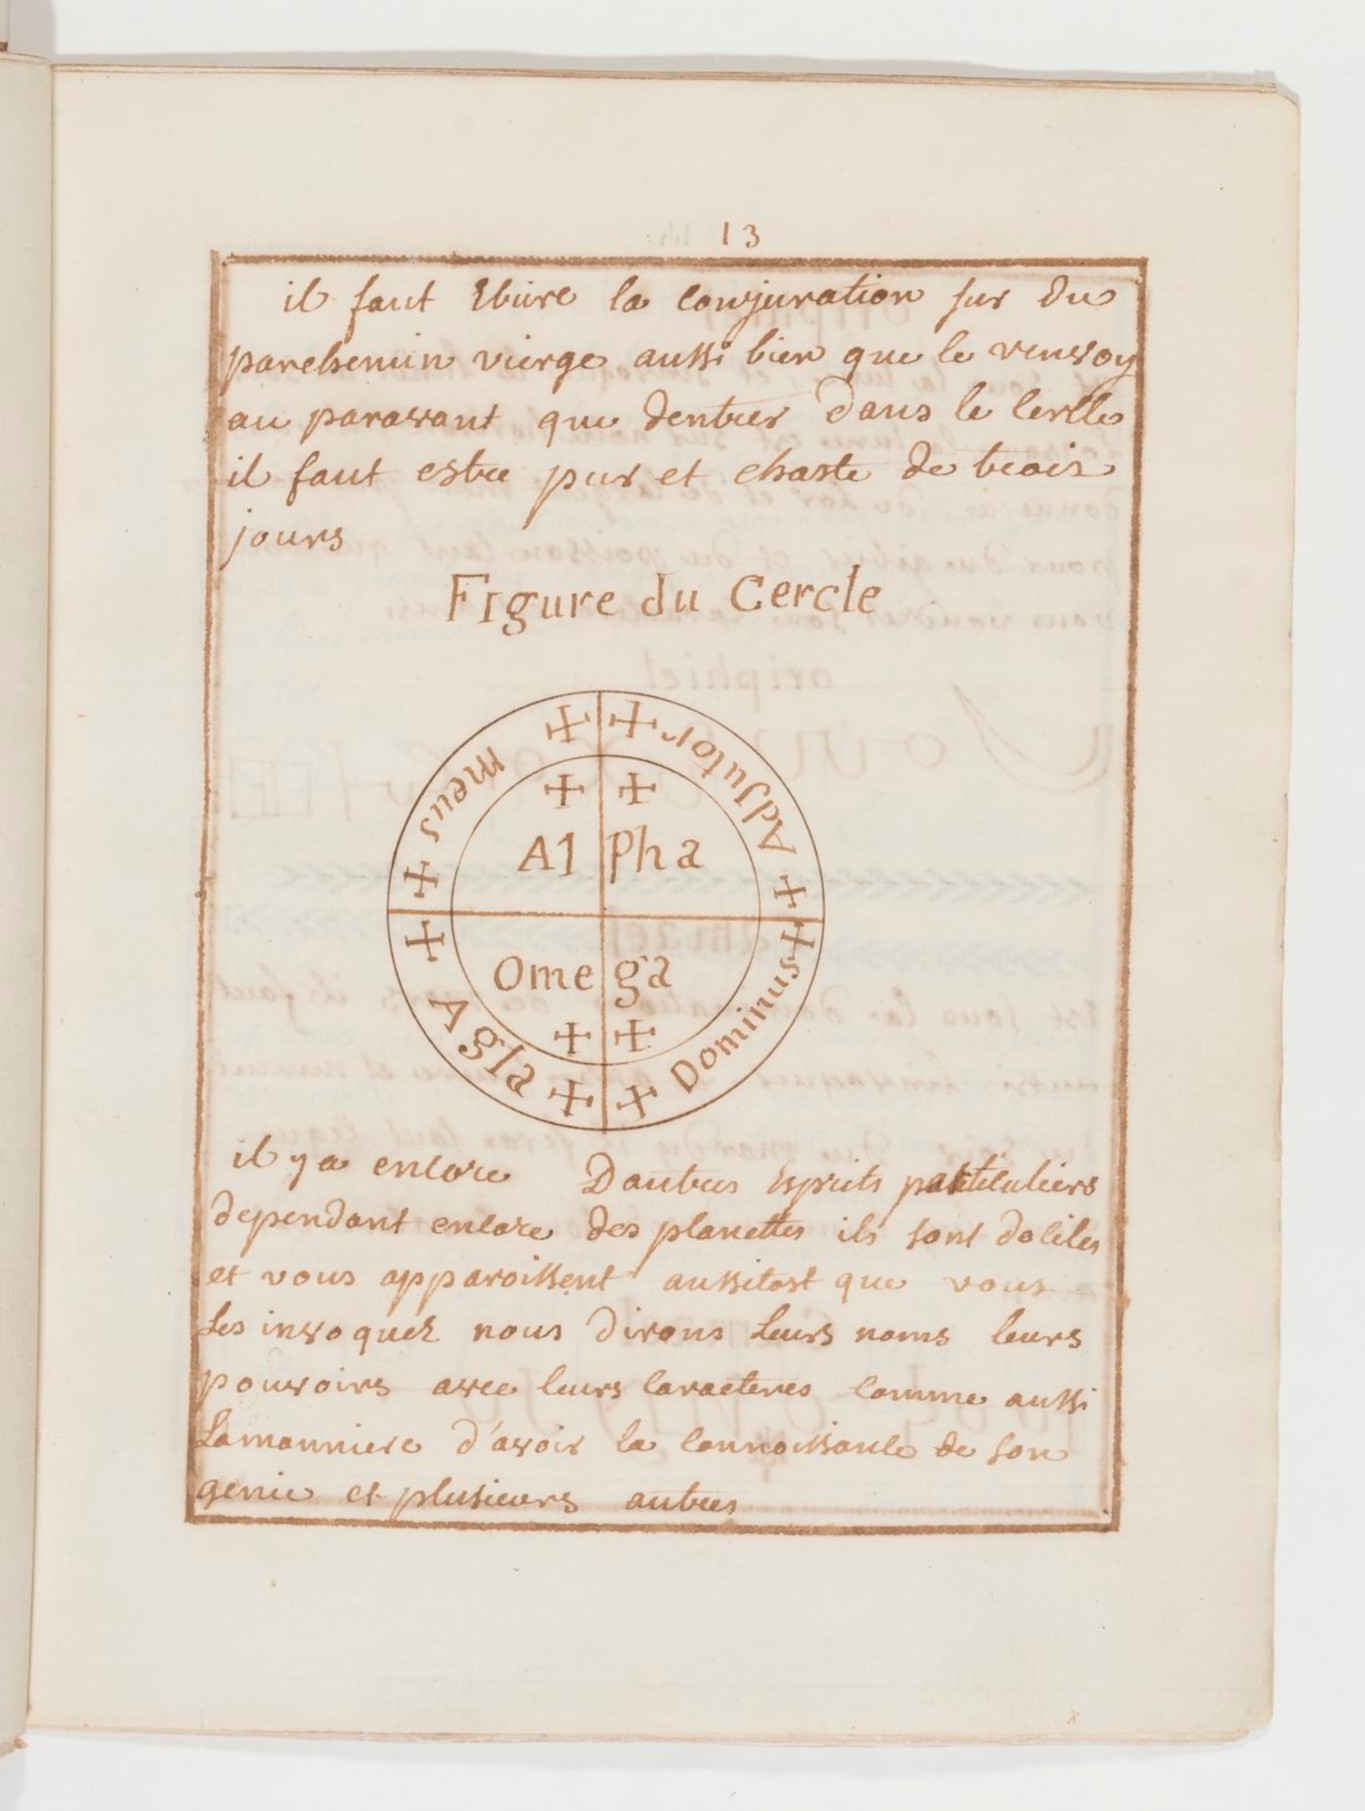 13
il faut Ecrire la conjuration sur du
parchemin vierge aussi bien que le renvoy
au paravant que dentrer dans le Cercle
il faut estre pur et chaste de trois
jours
Figure du Cercle
meus Adjutor
Alpha
Omega
Agla Dominus
il y a encore Dautres Esprits particuliers
dependant encore des planettes ils sont dociles
et vous apparoissent aussitost que vous
Les invoquez nous dirons Leurs noms leurs
pouvoirs avec leurs caracteres comme aussi
Lamanniere d'avoir la connoissance de son
genie et plusieurs autres